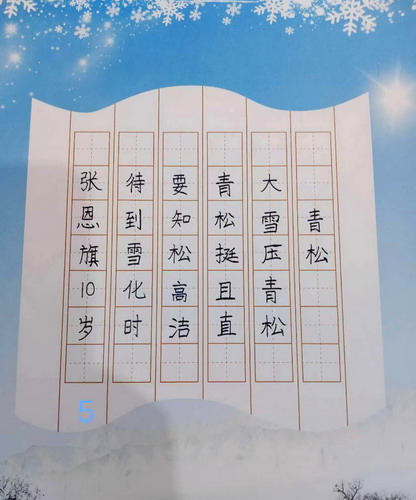 青松
大雪压青松
青松挺且直
要知松高洁
待到雪化时
张恩旗10岁
5